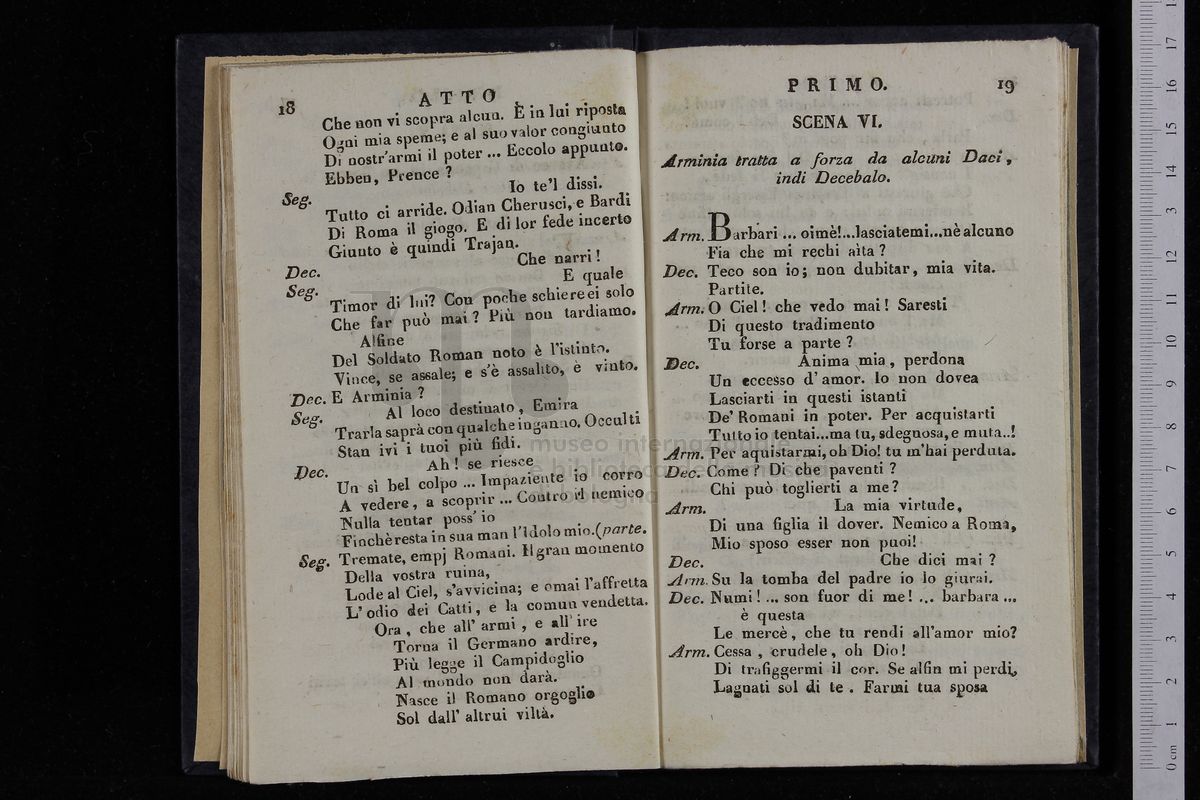 18
ATTO
Che non vi scopra alcun. È in lui riposta
Ogni mia speme; e al suo valor congiunto
Di nostr'armi il poter ... Eccolo appunto.
Ebben, Prence ?
Seg. Io te'l dissi.
Tutto ci arride. Odian Cherusci, e Bardi
Di Roma il giogo. E di lor fede incerto
Giunto è quindi Trajan.
Dec. Che narri !
Seg. E quale
Timor di lui? Con poche schiere ei solo
Che far può mai ? Più non tardiamo.
Alfine
Del Soldato Roman noto è l'istinto.
Vince, se assale; e s'è assalito, è vinto.
Dec. E Arminia ?
Seg. Al loco destinato, Emira
Trarla saprà con qualche inganno. Occulti
Stan ivi i tuoi più fidi.
Dec. Ah ! se riesce
Un sì bel colpo ... Impaziente io corro
A vedere, a scoprir ... Contro il nemico
Nulla tentar poss' io
Finchè resta in sua man l'Idolo mio.(parte.
Seg. Tremate, empj Romani. Il gran momento
Della vostra ruina,
Lode al Ciel, s'avvicina; e omai l'affretta
L' odio dei Catti, e la comun vendetta.
Ora, che all' armi, e all' ire
Torna il Germano ardire,
Più legge il Campidoglio
Al mondo non darà.
Nasce il Romano orgoglio
Sol dall' altrui viltà.
PRIMO.
19
SCENA VI.
Arminia tratta a forza da alcuni Daci,
indi Decebalo.
Arm. Barbari ... oimè!...lasciatemi...nè alcuno
Fia che mi rechi aìta ?
Dec. Teco son io; non dubitar, mia vita.
Partite.
Arm. O Ciel ! che vedo mai ! Saresti
Di questo tradimento
Tu forse a parte ?
Dec. Anima mia, perdona
Un eccesso d' amor. Io non dovea
Lasciarti in questi istanti
De' Romani in poter. Per acquistarti
Tutto io tentai...ma tu, sdegnosa, e muta..!
Arm. Per aquistarmi, oh Dio! tu m'hai perduta.
Dec. Come ? Di che paventi ?
Chi può toglierti a me ?
Arm. La mia virtude,
Di una figlia il dover. Nemico a Roma,
Mio sposo esser non puoi!
Dec. Che dici mai ?
Arm. Su la tomba del padre io lo giurai.
Dec. Numi ! ... son fuor di me ! ... barbara ...
è questa
Le mercè, che tu rendi all'amor mio?
Arm. Cessa, crudele, oh Dio !
Di trafiggermi il cor. Se alfin mi perdi,
Lagnati sol di te. Farmi tua sposa
museo internazionale
e biblioteca della musica
di bologna
0 cm 1 2 3 4 5 6 7 8 9 10 11 12 13 14 15 16 17